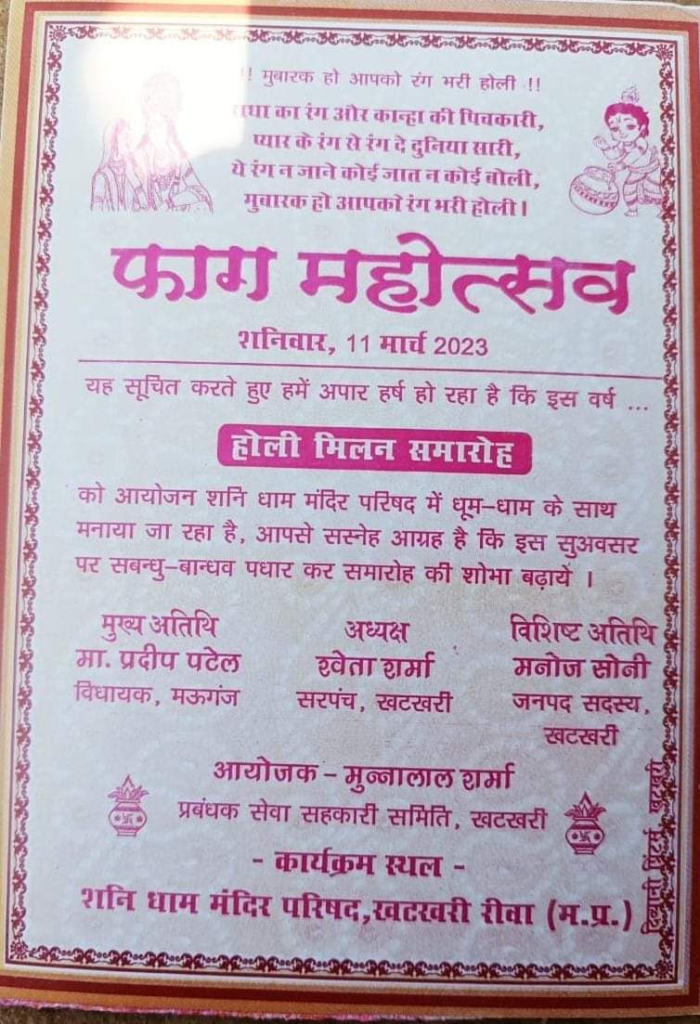 !! मुबारक हो आपको रंग भरी होली !!
राधा का रंग और कान्हा की पिचकारी,
प्यार के रंग से रंग दे दुनिया सारी,
ये रंग न जाने कोई जात न कोई बोली,
मुबारक हो आपको रंग भरी होली।
फाग महोत्सव
शनिवार, 11 मार्च 2023
यह सूचित करते हुए हमें अपार हर्ष हो रहा है कि इस वर्ष ...
होली मिलन समारोह
को आयोजन शनि धाम मंदिर परिषद में धूम–धाम के साथ
मनाया जा रहा है, आपसे सस्नेह आग्रह है कि इस सुअवसर
पर सबन्धु–बान्धव पधार कर समारोह की शोभा बढ़ायें ।
मुख्य अतिथि
मा. प्रदीप पटेल
विधायक, मऊगंज
अध्यक्ष
श्वेता शर्मा
सरपंच, खटखरी
विशिष्ट अतिथि
मनोज सोनी
जनपद सदस्य,
खटखरी
आयोजक – मुन्नालाल शर्मा
प्रबंधक सेवा सहकारी समिति, खटखरी
- कार्यक्रम स्थल -
शनि धाम मंदिर परिषद,खटखरी रीवा (म.प्र.)
दिव्यानी प्रिंटर्स, खटखरी